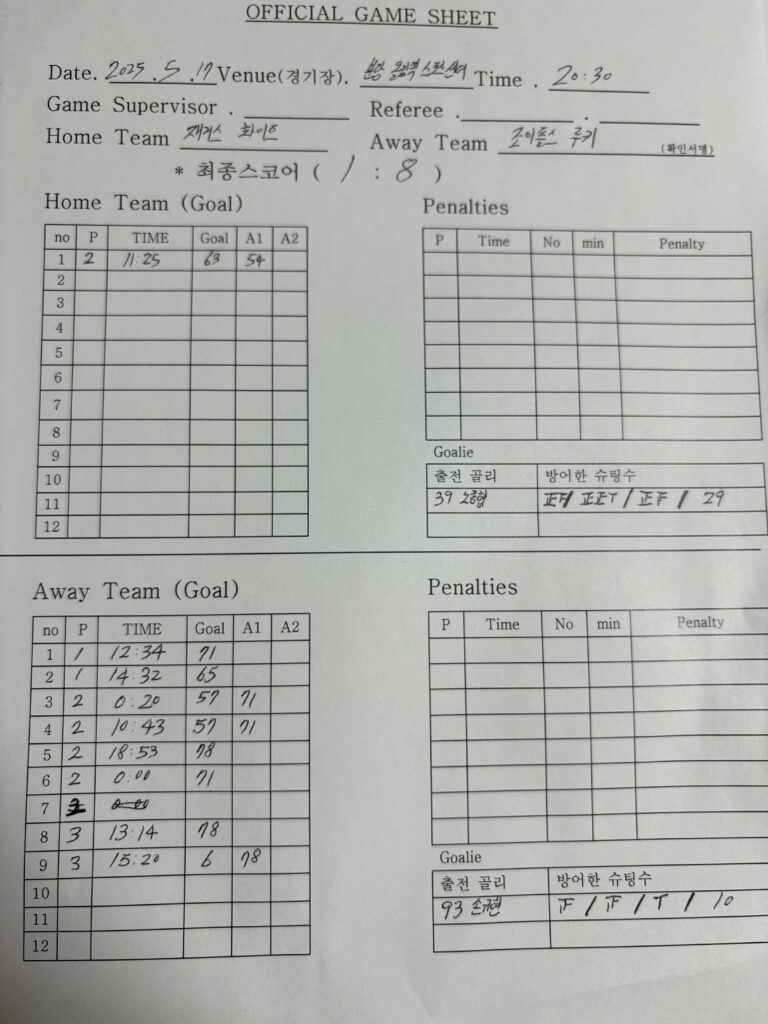 OFFICIAL GAME SHEET
Date. 2025 . 5 . 17 Venue(경기장). 분당 올림픽 스포츠센터 Time . 20:30
Game Supervisor . Referee . .
Home Team 재거스 화이트 Away Team 조이플스 루키 (확인서명)
* 최종스코어 ( 1 : 8 )
Home Team (Goal)
no P TIME Goal A1 A2
1 2 11:25 63 54
2
3
4
5
6
7
8
9
10
11
12
Penalties
P Time No min Penalty
Goalie
출전 골리 방어한 슈팅수
39 / 正正T / 正F / 29
Away Team (Goal)
no P TIME Goal A1 A2
1 1 12:34 71
2 1 14:32 65
3 2 0:20 57 71
4 2 10:43 57 71
5 2 18:53 78
6 2 0:00 71
7 2 0:00
8 3 13:14 78
9 3 15:20 6 78
10
11
12
Penalties
P Time No min Penalty
Goalie
출전 골리 방어한 슈팅수
93 손규현 F / F / T / 10